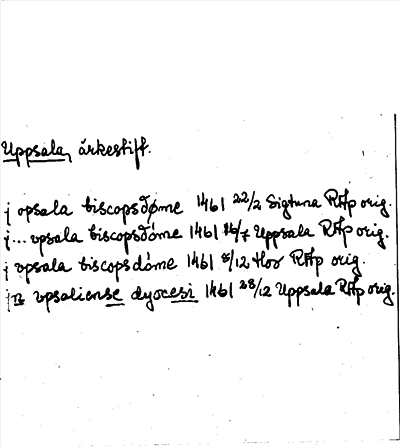 Uppsala, ärkestift.
j opsala biscopsdøme 1461 22/2 Sigtuna RAp orig.
j... vpsala biscopsdöme 1461 16/7 Uppsala RAp orig.
j vpsala biscopsdöme 1461 8/12 Hov RAp orig.
jn vpsaliense dyocesi 1461 28/12 Uppsala RAp orig.